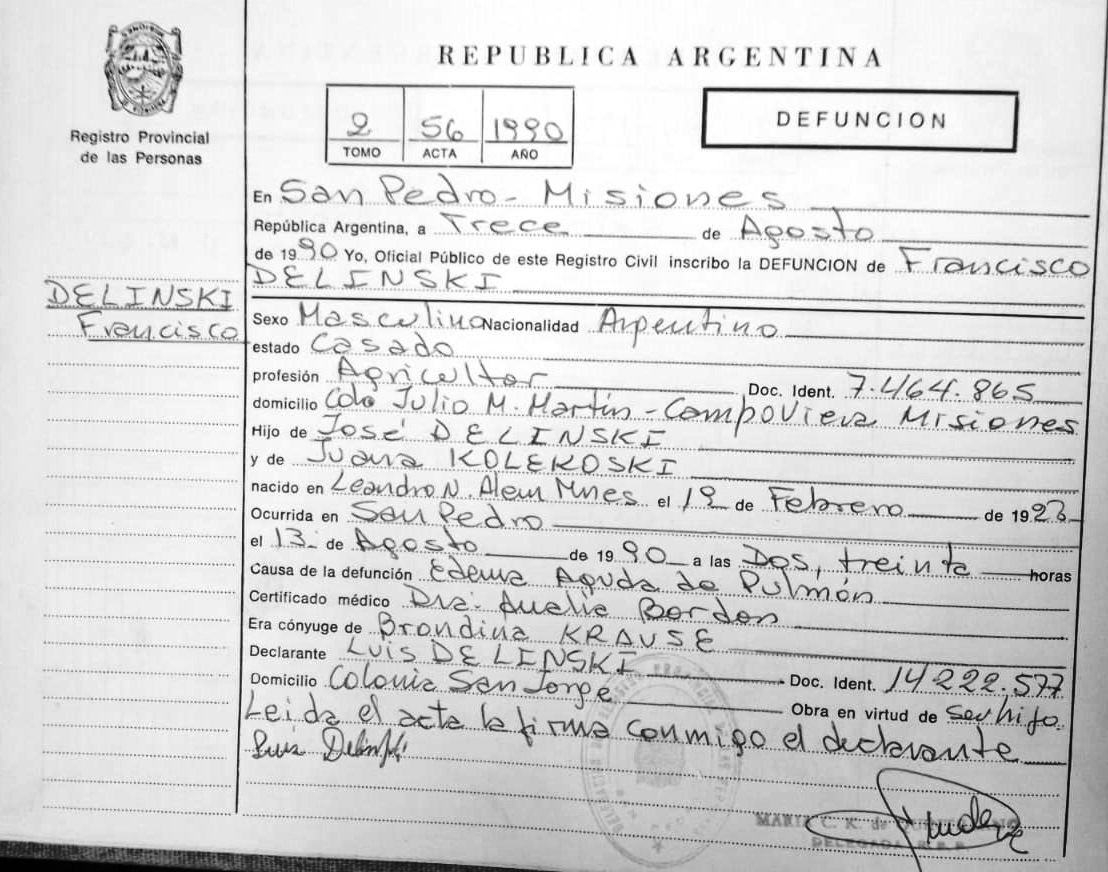 REPUBLICA ARGENTINA
Registro Provincial
de las Personas
2 56 1990
TOMO ACTA AÑO
DEFUNCION
En San Pedro - Misiones
República Argentina, a Trece de Agosto
de 1990 Yo, Oficial Público de este Registro Civil inscribo la DEFUNCION de Francisco
DELINSKI
DELINSKI
Francisco
Sexo Masculino Nacionalidad Argentino
estado Casado
profesión Agricultor Doc. Ident. 7.464.865
domicilio Colo Julio M. Martín - CampoViera Misiones
Hijo de José DELINSKI
y de Juana KOLEKOSKI
nacido en Leandro N. Alem Mnes el 19 de Febrero de 1923
Ocurrida en San Pedro
el 13 de Agosto de 1990 a las Dos, treinta horas
Causa de la defunción Edema Aguda de Pulmón
Certificado médico Dra. Bordon
Era cónyuge de Brondina KRAUSE
Declarante Luis DELINSKI Doc. Ident. 14.222.577
Domicilio Colonia San Jorge Obra en virtud de ser hijo.
Leida el acta la firma conmigo el declarante
Luis Delinski
MARIA C. K. de
DELEGADA